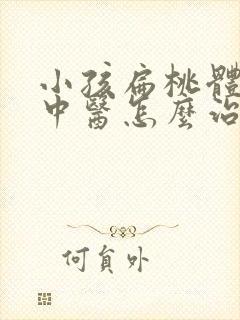 小孩扁桃體
中醫怎麼治
何負外